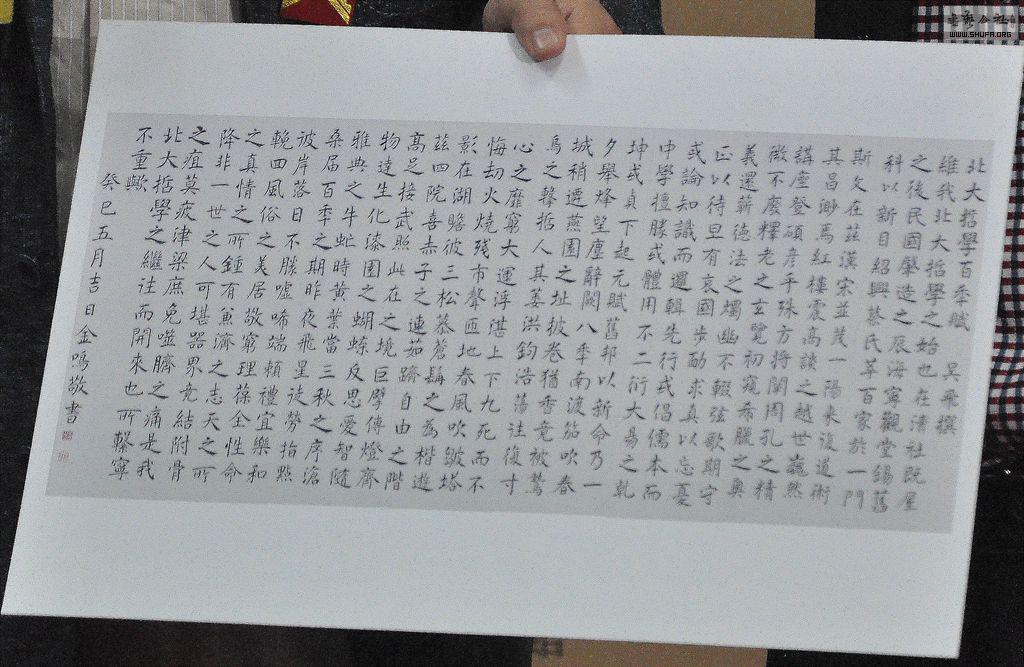 北大哲學百年賦 吴飛撰
維我北大哲學之始也在清社既屋
之後民國肇造之辰海寧觀堂錫舊
科以新目紹興蔡氏萃百家於一門
斯文在茲漢宋並茂一陽來復道術
其昌渺馬紅樓震高談之越世巍然
講座登碩彦乎殊方將闡周孔之精
微不廢釋老之玄覽初窺希臘之奥
義還薪德法之燭幽不輟弦歌期守
正以待旦有哀國步勵求真以忘憂
或論知識而邏輯先行或倡儒本而
中學擅勝或體用不二衍大易之乾
坤或真下起元賦舊邦以新命乃一
夕舉烽望塵辭闕八年南渡笳吹春
城稍遷燕園之址披卷猶香竟被驚
鳥之聲哲人其萎洪鈞浩蕩往復寸
心之靡窮大運浮湛上下九死而不
悔劫火燒殘市聲匝地春風吹皺塔
影在湖瞻彼三松慕蒼髯之為楷遊
茲四院喜赤子之連茹躋自由之階
高足接武照此在之境巨擘傳燈齊
物達生化漆園之蝴蝶反思愛智隨
雅典之牛虻時黄葉當三秋之序滄
桑届百年之期昨夜飛星徒勞指點
彼岸落日不勝噓唏端賴禮宜樂和
輓四風俗之美居敬窮理葆全性命
之真情之所鍾有魚濟之志天之所
降非一世之人可堪器界竞結附骨
之疽莫疲津梁庶免噬臍之痛是我
北大哲學之繼往而開來也所繫寧
不重歟
癸巳五月吉日金鳴敬書
WWW.SHUFA.ORG